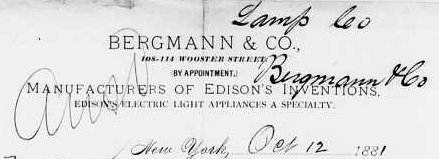 Lamp Co
BERGMANN & CO.,
108-114 WOOSTER STREET,
BY APPOINTMENT,
Bergmann & Co
MANUFACTURERS OF EDISON'S INVENTIONS,
EDISON'S ELECTRIC LIGHT APPLIANCES A SPECIALTY.
New York, Oct 12 1881